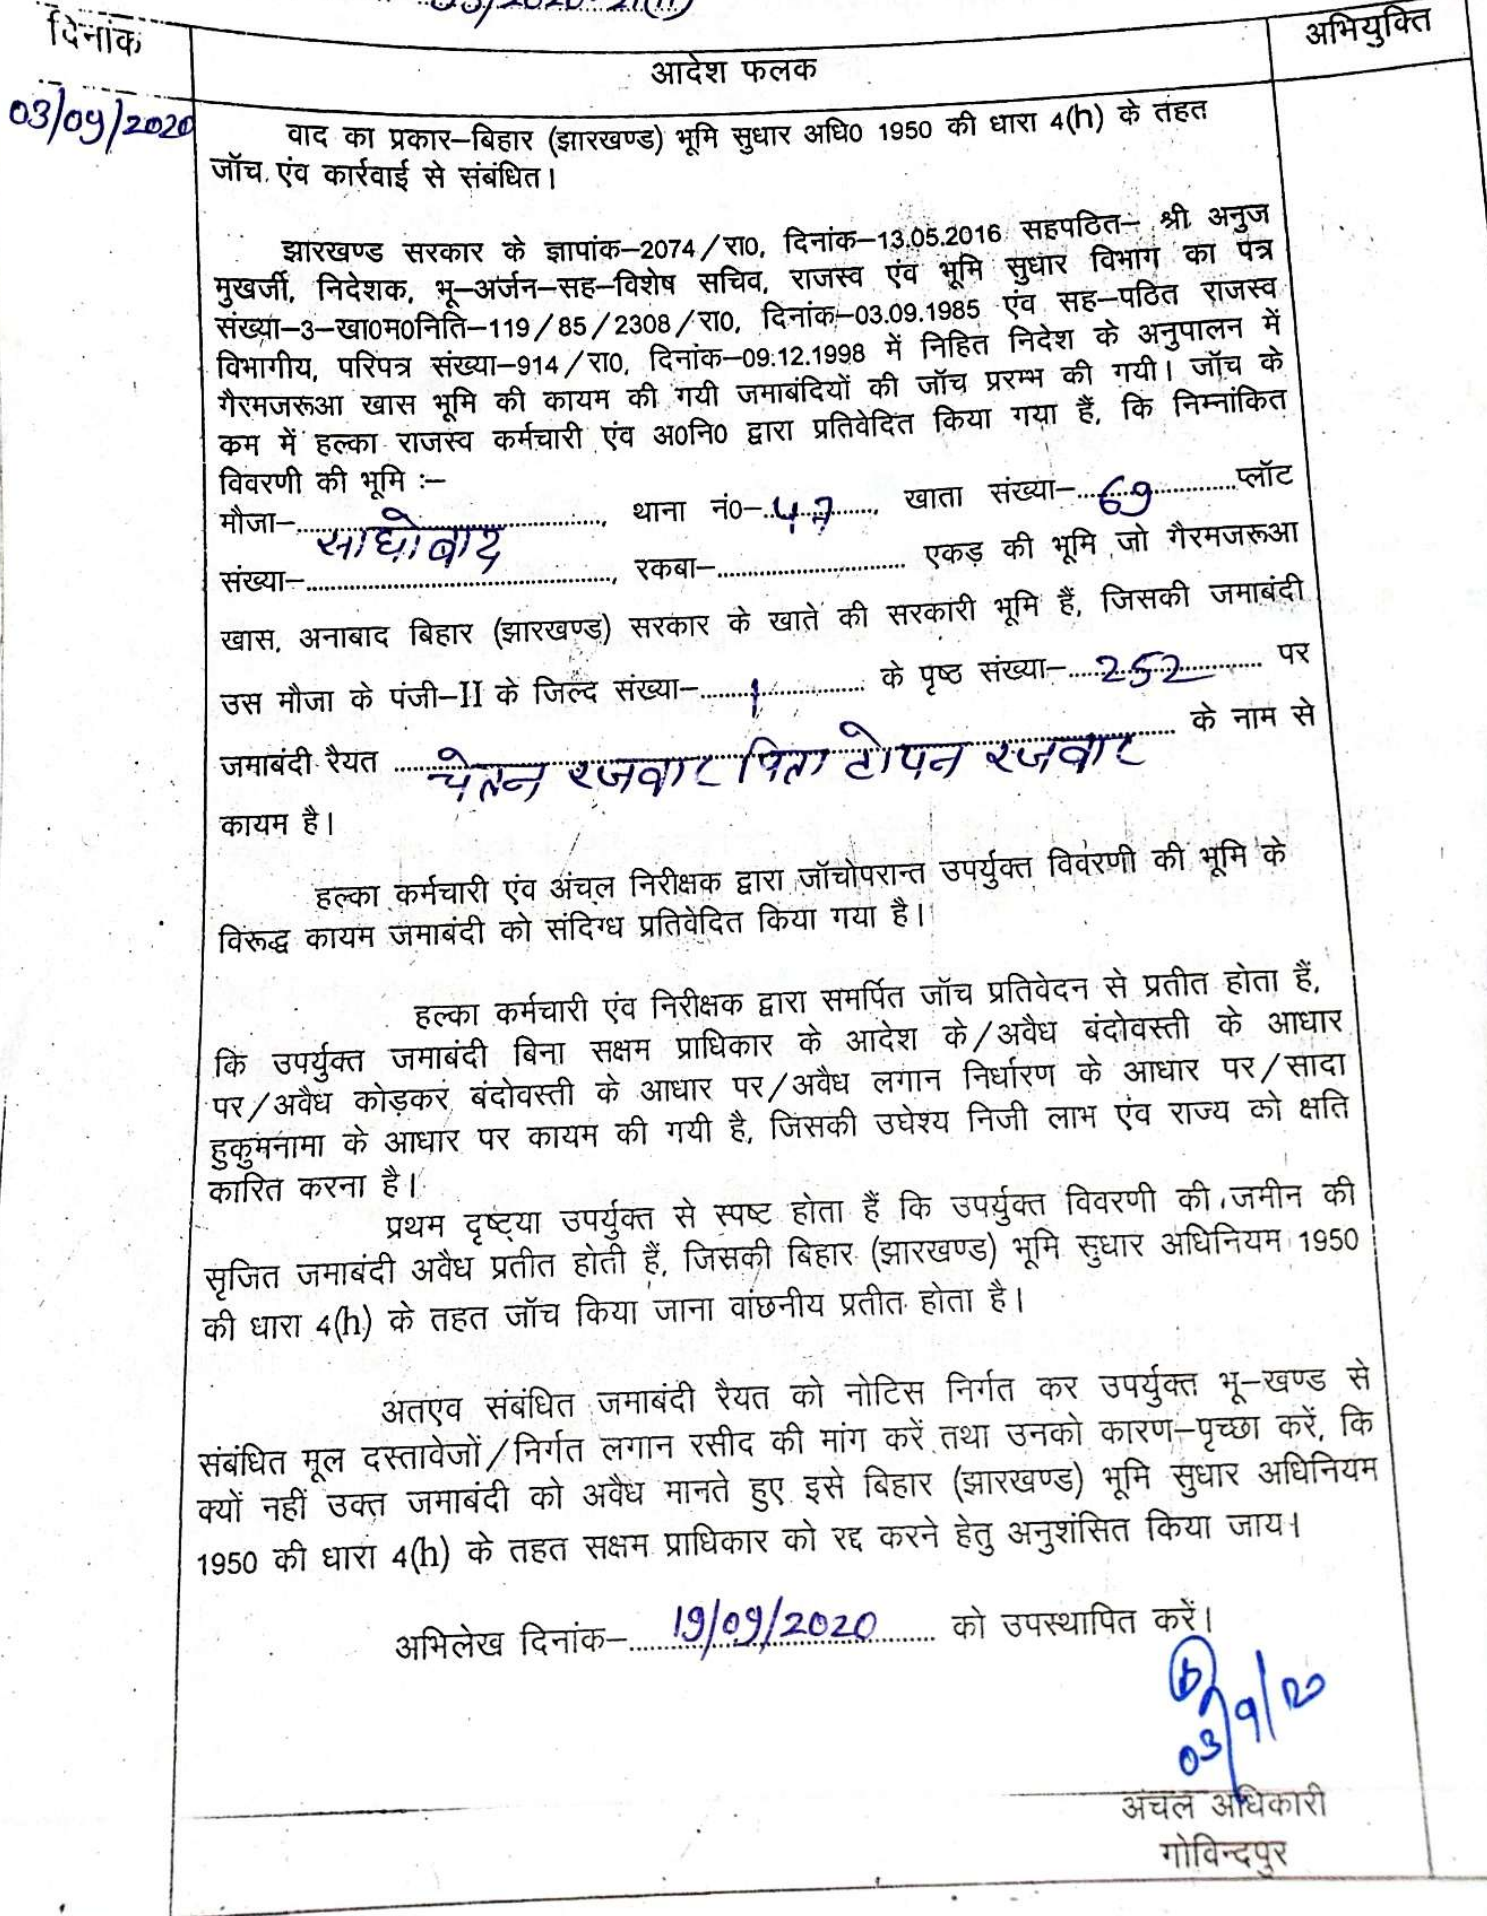 दिनांक
आदेश फलक
अभियुक्ति
03/09/2020
वाद का प्रकार–बिहार (झारखण्ड) भूमि सुधार अधि0 1950 की धारा 4(h) के तहत
जॉच एंव कार्रवाई से संबंधित।
झारखण्ड सरकार के ज्ञापांक–2074/रा0, दिनांक–13.05.2016 सहपठित– श्री अनुज
मुखर्जी, निदेशक, भू–अर्जन–सह–विशेष सचिव, राजस्व एंव भूमि सुधार विभाग का पत्र
संख्या–3–खा0म0निति–119/85/2308/रा0, दिनांक–03.09.1985 एंव सह–पठित राजस्व
विभागीय, परिपत्र संख्या–914/रा0, दिनांक–09.12.1998 में निहित निदेश के अनुपालन में
गैरमजरूआ खास भूमि की कायम की गयी जमाबंदियों की जॉच प्ररम्भ की गयी। जॉच के
कम में हल्का राजस्व कर्मचारी एंव अ0नि0 द्वारा प्रतिवेदित किया गया हैं, कि निम्नांकित
विवरणी की भूमि :–
मौजा– साधोबाद, थाना नं0– 47, खाता संख्या– 69 प्लॉट
संख्या–............, रकबा–............ एकड़ की भूमि जो गैरमजरूआ
खास, अनाबाद बिहार (झारखण्ड) सरकार के खाते की सरकारी भूमि हैं, जिसकी जमाबंदी
उस मौजा के पंजी–II के जिल्द संख्या– 1 के पृष्ठ संख्या– 252 पर
जमाबंदी रैयत चेतन रजवार पिता टोपन रजवार के नाम से
कायम है।
हल्का कर्मचारी एंव अंचल निरीक्षक द्वारा जॉचोपरान्त उपर्युक्त विवरणी की भूमि के
विरूद्ध कायम जमाबंदी को संदिग्ध प्रतिवेदित किया गया है।
हल्का कर्मचारी एंव निरीक्षक द्वारा समर्पित जॉच प्रतिवेदन से प्रतीत होता हैं,
कि उपर्युक्त जमाबंदी बिना सक्षम प्राधिकार के आदेश के/अवैध बंदोवस्ती के आधार
पर/अवैध कोड़कर बंदोवस्ती के आधार पर/अवैध लगान निर्धारण के आधार पर/सादा
हुकुमनामा के आधार पर कायम की गयी है, जिसकी उघेश्य निजी लाभ एंव राज्य को क्षति
कारित करना है।
प्रथम दृष्ट्या उपर्युक्त से स्पष्ट होता हैं कि उपर्युक्त विवरणी की जमीन की
सृजित जमाबंदी अवैध प्रतीत होती हैं, जिसकी बिहार (झारखण्ड) भूमि सुधार अधिनियम 1950
की धारा 4(h) के तहत जॉच किया जाना वांछनीय प्रतीत होता है।
अतएव संबंधित जमाबंदी रैयत को नोटिस निर्गत कर उपर्युक्त भू–खण्ड से
संबंधित मूल दस्तावेजों/निर्गत लगान रसीद की मांग करें तथा उनको कारण–पृच्छा करें, कि
क्यों नहीं उक्त जमाबंदी को अवैध मानते हुए इसे बिहार (झारखण्ड) भूमि सुधार अधिनियम
1950 की धारा 4(h) के तहत सक्षम प्राधिकार को रद्द करने हेतु अनुशंसित किया जाय।
अभिलेख दिनांक– 19/09/2020 को उपस्थापित करें।
03/9/20
अंचल अधिकारी
गोविन्दपुर